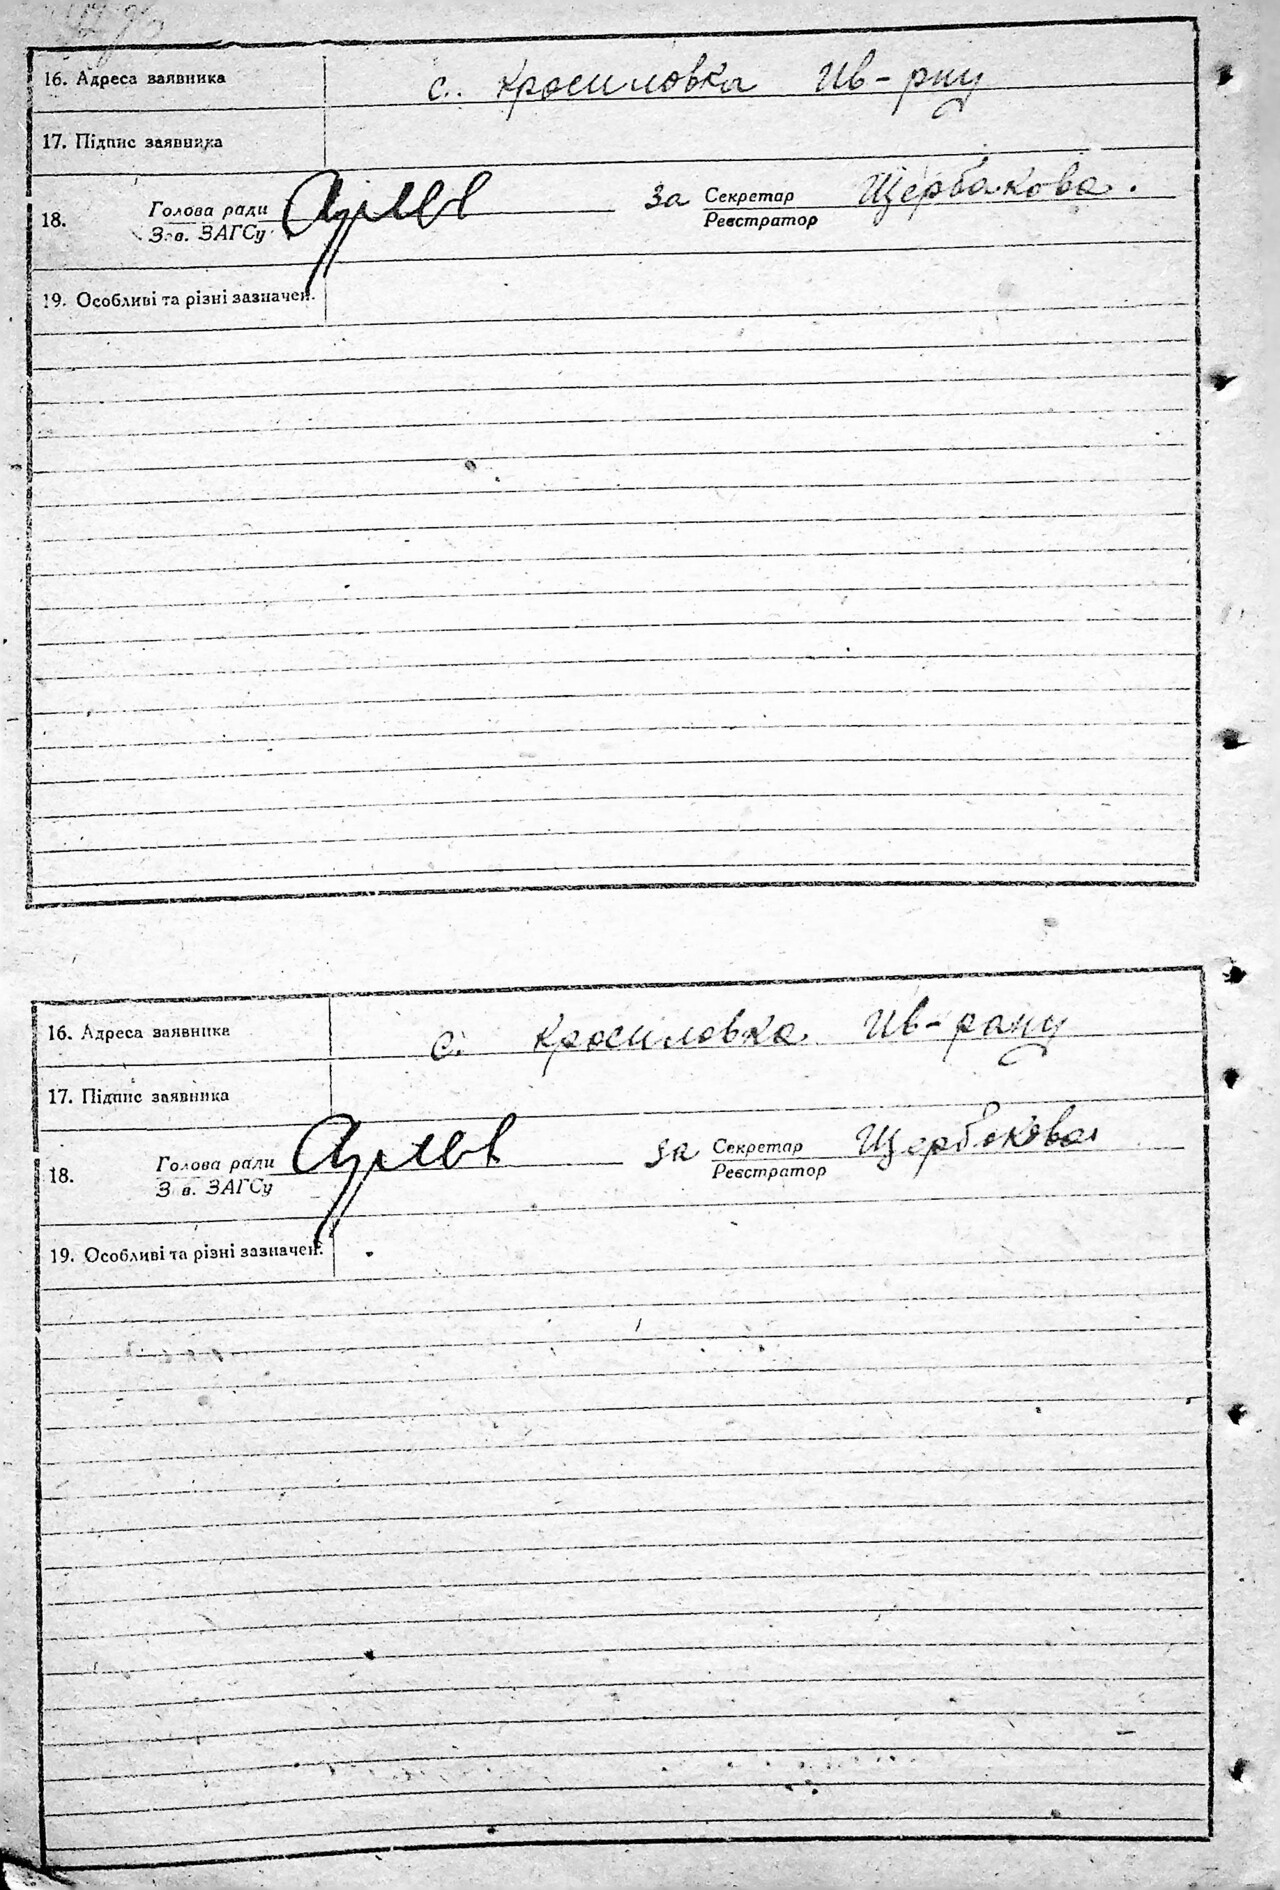 16. Адреса заявника с. Красиловка Ив-рну
17. Підпис заявника
18. Голова ради За Секретар Щербакова.
Зав. ЗАГСу Реєстратор
19. Особливі та різні зазначен.
16. Адреса заявника с. Красиловка Ив-рану
17. Підпис заявника
18. Голова ради За Секретар Щербакова
Зав. ЗАГСу Реєстратор
19. Особливі та різні зазначен.